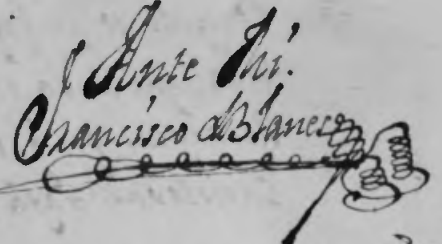 Ante Mi.
Francisco Blanco